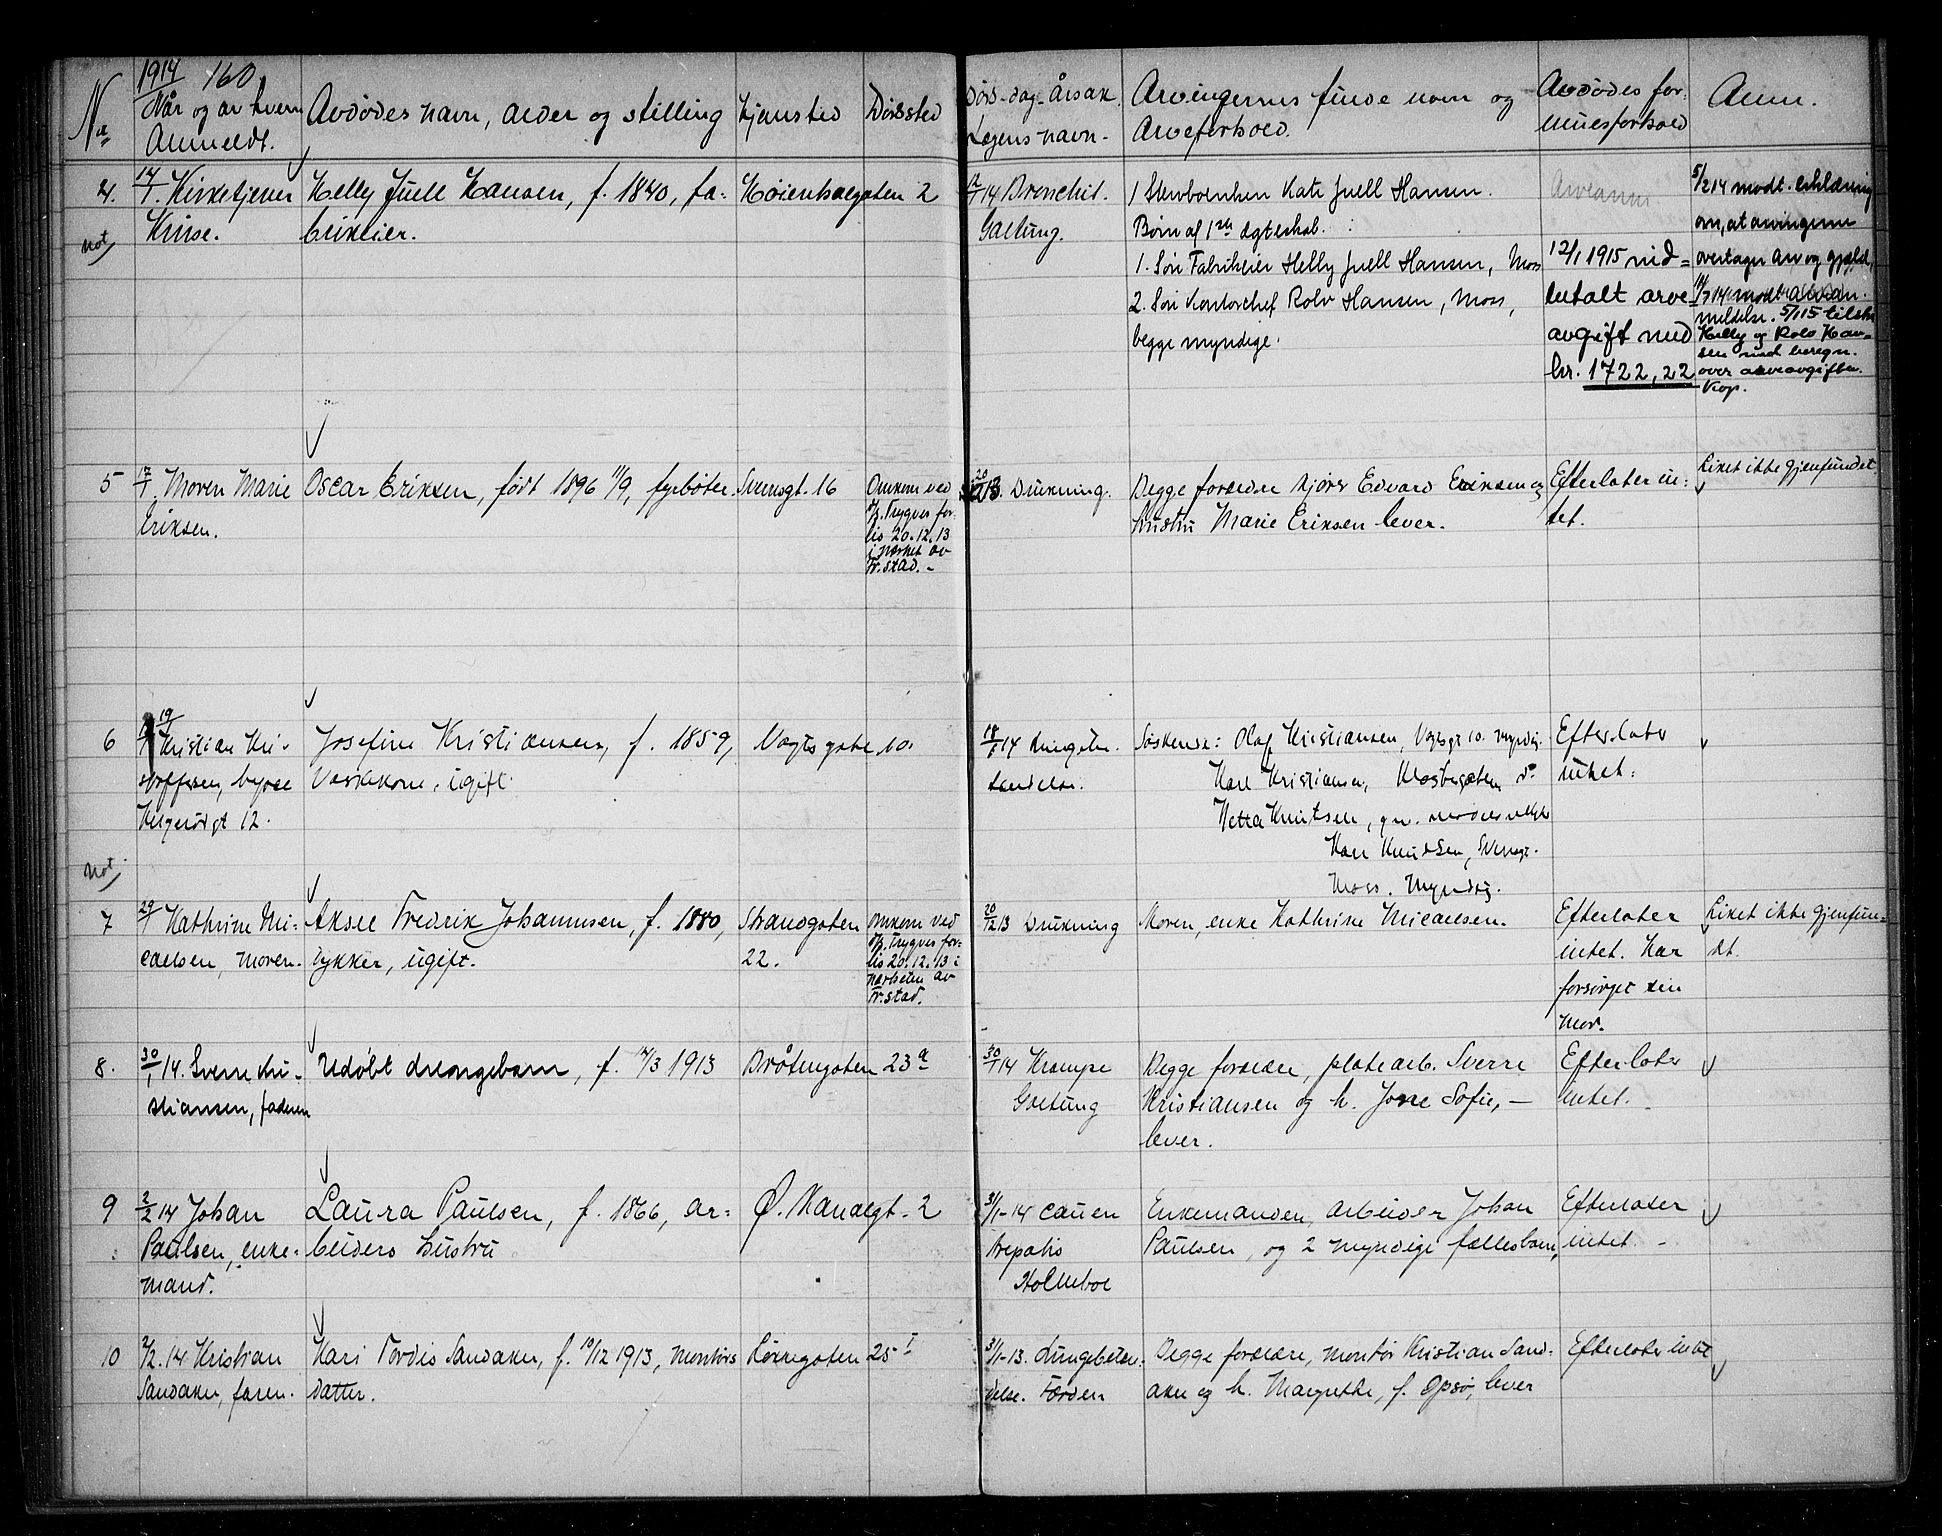 1914 160
No
Når og av hvem
Anmeldt.
Avdødes navn, alder og stilling
Hjemsted
Dødssted
Døds-dag-årsak
Lægens navn-
Arvingernes fulde navn og
Arveforhold.
Avdødes for-
muesforhold
Anm.
4.
not
14/1. Kirketjener
Helly Juell Hansen, f. 1840, fa-
brikeier.
Høienhalgaten 2
12/1 14 Bronchit.
Galtung.
1 Stervboenken Kate Juell Hansen.
Børn af 1ste ægteskab. :
1. Søn Fabrikeier Helly Juell Hansen, Moss
2. Søn Kontorchef Rolv Hansen, Moss,
begge myndige.
Arveanm.
12/1 1915 ind=
betalt arve
avgift med
kr. 1722,22
5/2 14 modt. erklæring
om, at arvingerne
overtager arv og gjæld,
14/7 14 modt arvean.
meldelse. 5/1 15 tilskr
Helly og Rolv Han-
sen med beregn.
over arveavgiften.
Kop.
5
17/1. Moren Marie
Eriksen.
Oscar Eriksen, født 1896 11/9, fyrbøter.
Svensgt. 16
Omkom ved
Trygves for-
lis 20.12.13
i nærhet av
Fr.stad. -
20/12 13. Drukning.
Begge forældre Edvard Eriksen og
hustru Marie Eriksen lever.
Efterlater in-
tet.
Liket ikke gjenfundet.
6
19/1 Kristian Kri-
stoffersen,
12.
Josefine Kristiansen, f. 1859,
Vaskekone, ugift.
Vogts gate 10.
18/1 14 Lungebe-
tændelse.
Søskende: Olaf Kristiansen, Vogtsgt 10. myndig.
Karl Kristiansen, do
Netta Knutsen,
Karl Knudsen,
Moss. Myndig.
Efterlater
intet.
not
7
29/1 Kathrine Mi-
caelsen, Moren.
Aksel Fredrik Johannesen, f. 1880,
Dykker, ugift.
Strandgaten
22.
Omkom ved
Trygves for-
lis 20.12.13 i
nærheten av
Fr.stad.
20/12 13 Drukning
Moren, enke Kathrine Micaelsen.
Efterlater
intet. Har
forsørget sin
Mor.
Liket ikke gjenfun-
det.
8.
30/1 14. Sverre Kri-
stiansen, faderen
Udøbt drengebarn, f. 14/3 1913
Bråtengaten 23a
30/1 14 Krampe
Galtung
Begge forældre, platearb. Sverre
Kristiansen og h. Jone Sofie, -
lever.
Efterlater
intet.
9
2/2 14 Johan
Paulsen, enke-
mand.
Laura Paulsen, f. 1866, ar-
beiders hustru
Ø. Kanalgt. 2
31/1-14 Cancer
hepatis
Holmboe
Enkemanden, arbeider Johan
Paulsen, og 2 myndige fællesbarn,
Efterlater
intet. -
10
2/2. 14 Kristian
Sandaker, faren.
Kari Tordis Sandaker, f. 10/12 1913, Montørs
datter.
25 I
31/1-13. Lungebetæn-
delse. Færden
Begge forældre, montør Kristian Sand-
aker og h. Margrethe, f. Opsø, lever
Efterlater intet